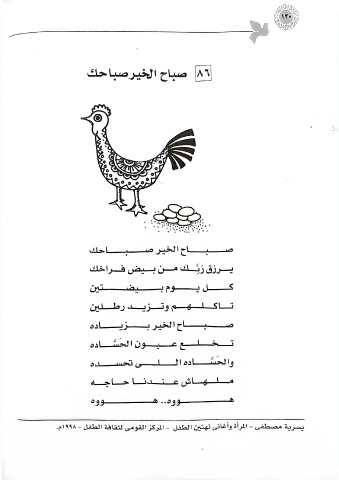 ١٢٠
٨٦ صباح الخير صباحك
صباح الخير صباحك
يرزق ربك من بيض فراخك
كل يوم بيضتين
تاكلهم وتزيد رطلين
صباح الخير بزياده
تخلع عيون الحساده
والحساده اللى تحسده
ملهاش عندنا حاجه
هـــووه.. هـــووه
يسرية مصطفى - المرأة وأغانى تهنين الطفل - المركز القومى لثقافة الطفل - ١٩٩٨م.